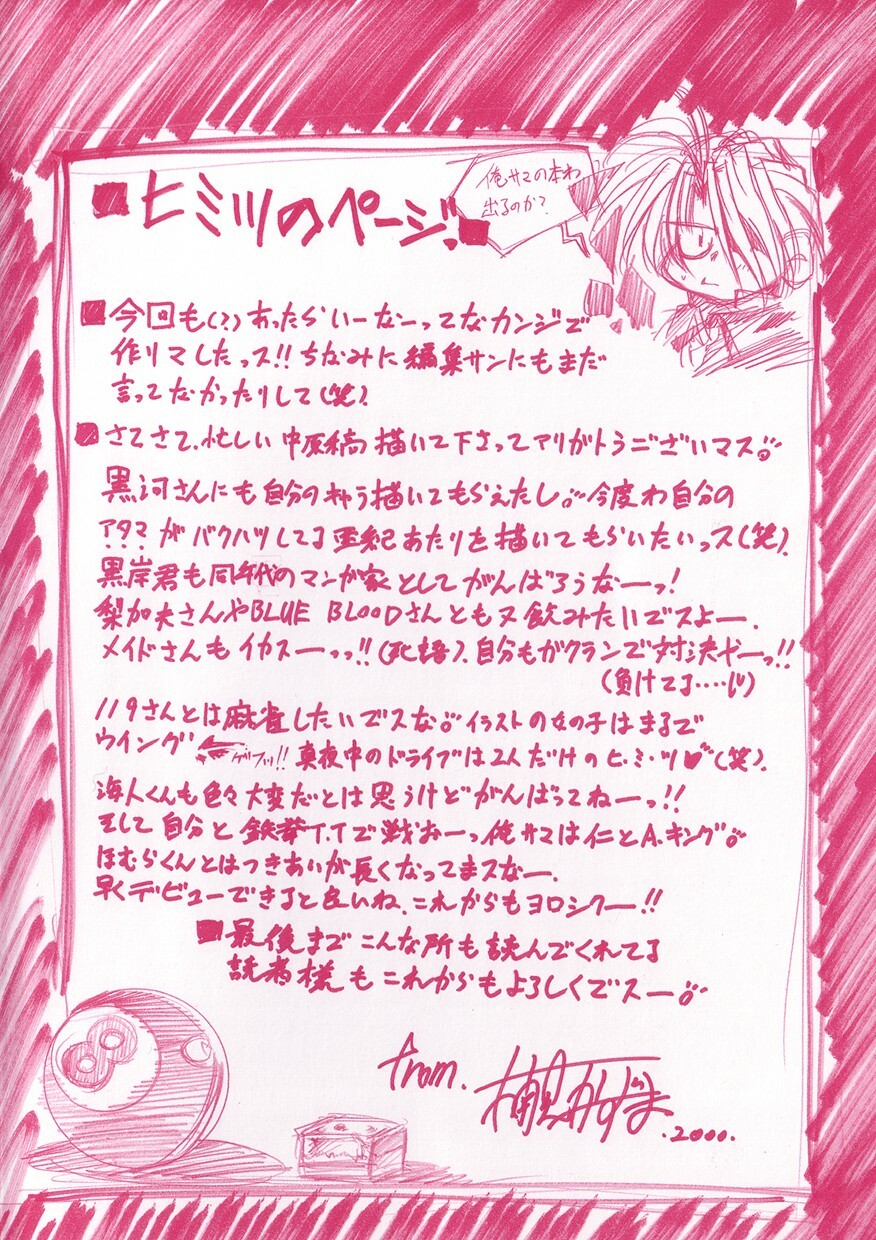 ■ヒミツのページ!■
俺サマの本わ
出るのか?
■今回も(?)あったらいーなーってなカンジで
作りマしたっス!!ちなみに編集サンにもまだ
言ってなかったりして(笑).
■さてさて、忙しい中原稿描いて下さってアリがトうございマス
黒河さんにも自分のキャラ描いてもらえたし 今度わ自分の
アタマがバクハツしてる亜紀あたりを描いてもらいたいっス(笑).
黒岸君も同年代のマンガ家としてがんばろうなーっ!
梨加夫さんやBLUE BLOODさんとも又飲みたいでスよー.
メイドさんもイカスーっっ!!(死語).自分もガクランで対決だーっ!!
(負けてる‥‥し)
119さんとは麻雀したいでスな イラストの女の子はまるで
ウイング ゲフッ!! 真夜中のドライブは2人だけのヒ・ミ・ツ♥(笑).
海人くんも色々大変だとは思うけどがんばってねーっ!!
そして自分と鉄拳T.Tで戦おーっ 俺サマは仁とA.キング
ほむらくんとはつきあいが長くなってまスなー.
早くデビューできると良いね、これからもヨロシクー!!
■最後までこんな所も読んでくれてる
読者様もこれからもよろしくでスー
from.
.2000.